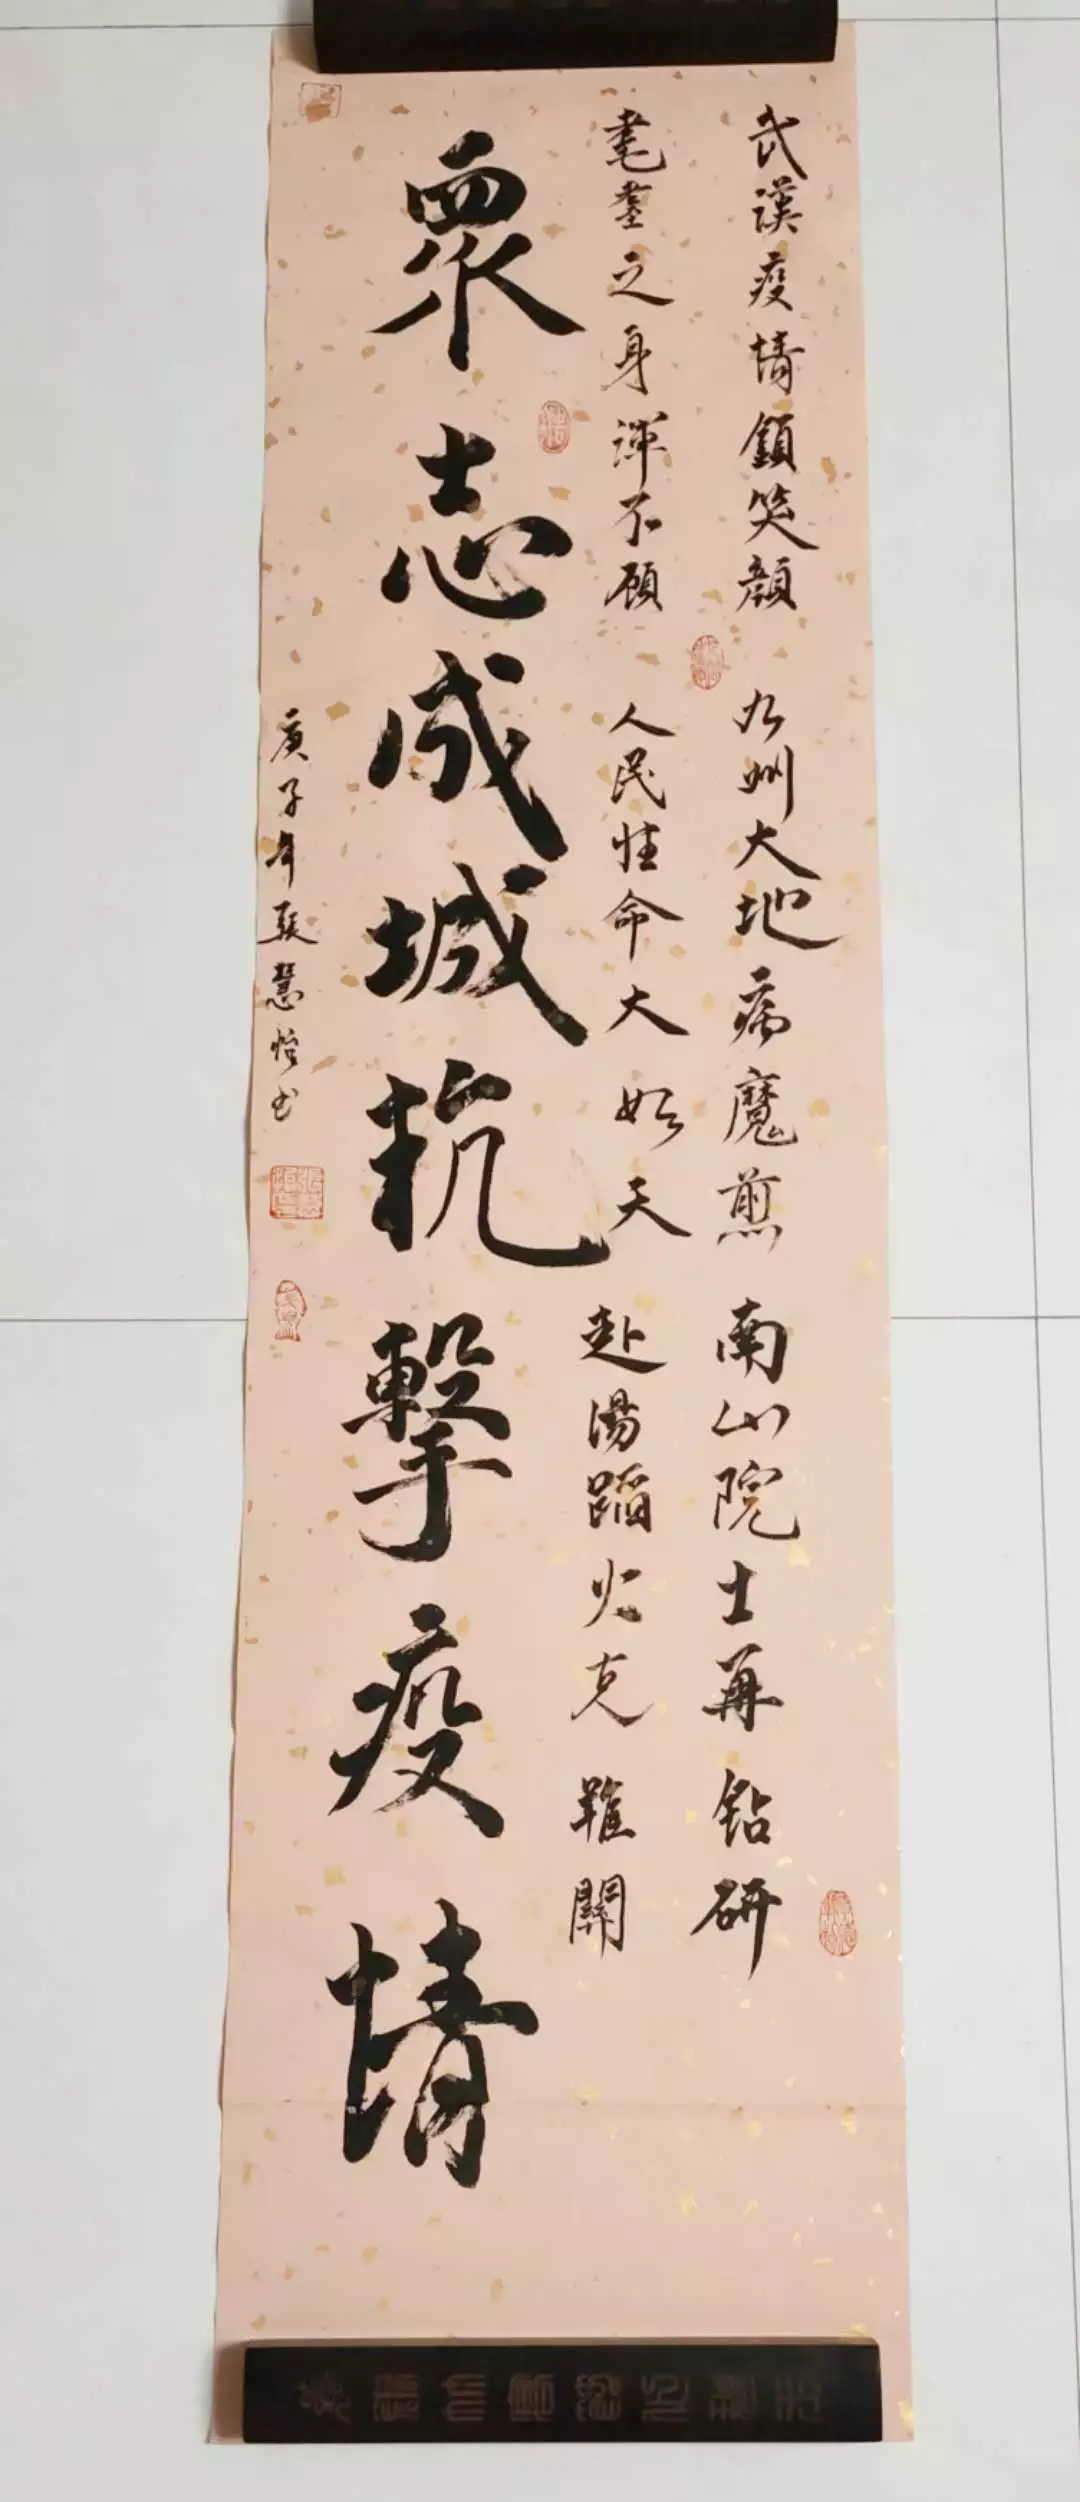 武漢疫情鎖笑顏 九州大地病魔煎 南山院士再鉆研
耄耋之身渾不顧 人民性命大如天 赴湯蹈火克難關
眾志成城抗擊疫情
庚子年張慧怡书